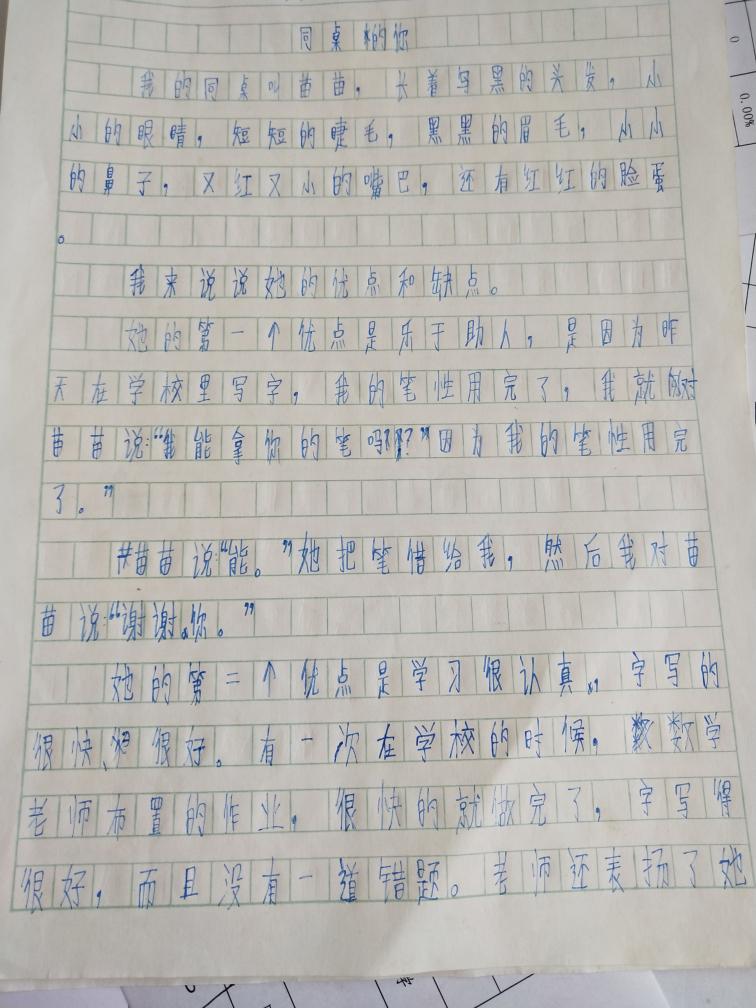 同桌的你
我的同桌叫苗苗，长着乌黑的头发，小
小的眼睛，短短的睫毛，黑黑的眉毛，小小
的鼻子，又红又小的嘴巴，还有红红的脸蛋
。
我来说说她的优点和缺点。
她的第一个优点是乐于助人，是因为昨
天在学校里写字，我的笔性用完了，我就对
苗苗说：“我能拿你的笔吗？”因为我的笔性用完
了。”
苗苗说“能。”她把笔借给我，然后我对苗
苗说：“谢谢你。”
她的第二个优点是学习很认真，字写的
很快、很好。有一次在学校的时候，数学
老师布置的作业，很快的就做完了，字写得
很好，而且没有一道错题。老师还表扬了她
0
0.00%